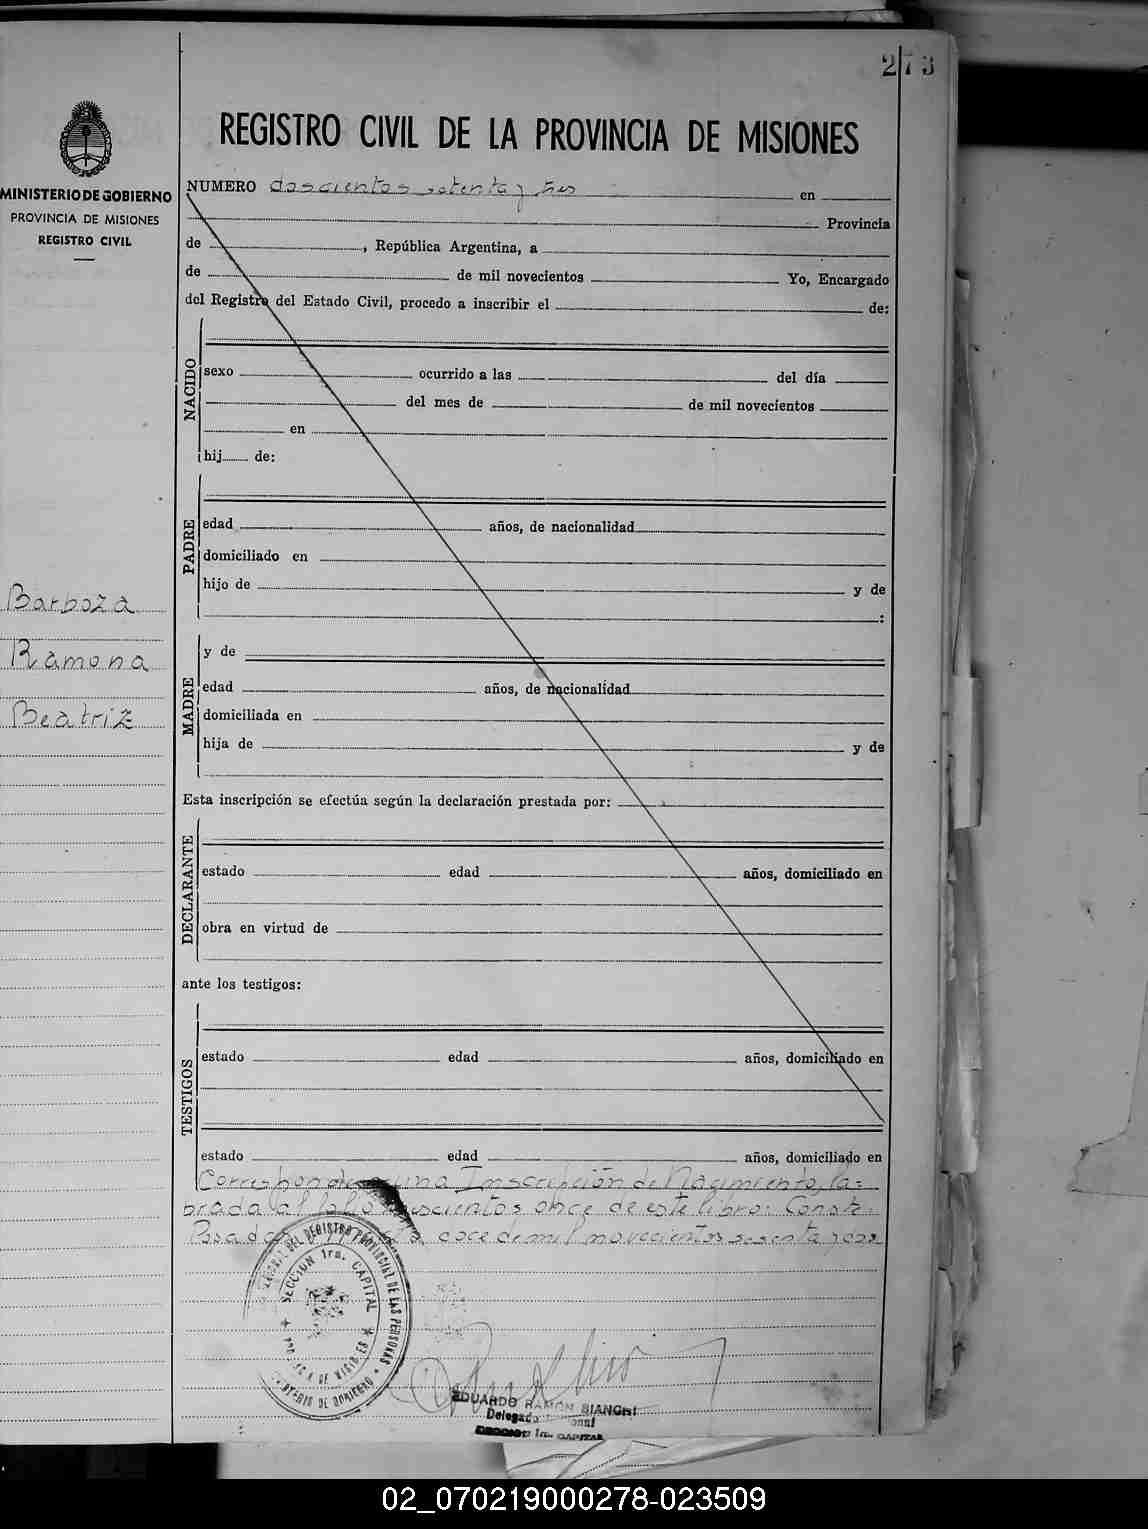 273
REGISTRO CIVIL DE LA PROVINCIA DE MISIONES
MINISTERIO DE GOBIERNO
PROVINCIA DE MISIONES
REGISTRO CIVIL
NUMERO doscientos setenta y tres en
Provincia
de , República Argentina, a
de de mil novecientos Yo, Encargado
del Registro del Estado Civil, procedo a inscribir el de:
NACIDO
sexo ocurrido a las del día
del mes de de mil novecientos
en
hij de:
PADRE
edad años, de nacionalidad
domiciliado en
hijo de y de
:
Barboza
Ramona
Beatriz
MADRE
y de
edad años, de nacionalidad
domiciliada en
hija de y de
Esta inscripción se efectúa según la declaración prestada por:
DECLARANTE
estado edad años, domiciliado en
obra en virtud de
ante los testigos:
TESTIGOS
estado edad años, domiciliado en
estado edad años, domiciliado en
Corresponde a una Inscripción de Nacimiento, la=
brada al folio doscientos once de este libro. Conste.
Posadas doce de mil novecientos sesenta y
REGISTRO PROVINCIAL DE LAS PERSONAS
SECCION 1ra. CAPITAL
EDUARDO RAMON BIANCHI
Delegado
1ra. CAPITAL
02_070219000278-023509